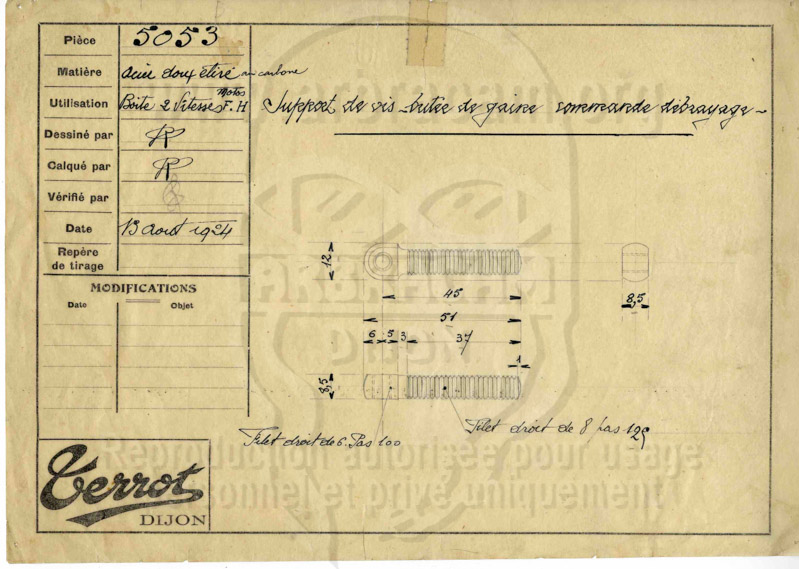 Pièce 5053
Matière acier doux étiré au carbone
Utilisation Boîte 2 Vitesses Motos F. H
Support de vis butée de gaine commande débrayage
Dessiné par R
Calqué par R
Vérifié par
Date 13 août 1924
Repère
de tirage
MODIFICATIONS
Date Objet
12
45
8,5
51
6 5 3 37
1
8,5
Filet droit de 6. Pas 100
Filet droit de 8 pas 125
Terrot
DIJON
ARBRACAM
DIJON
Reproduction autorisée pour usage
personnel et privé uniquement